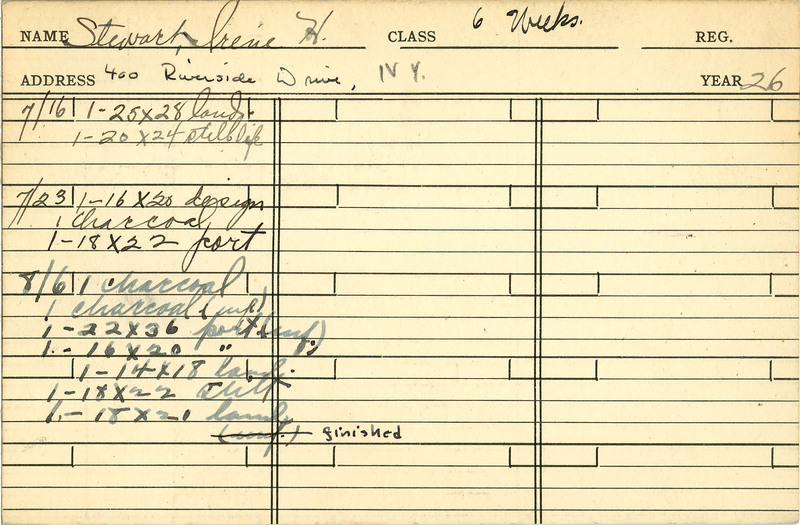 NAME Stewart, Irene H. CLASS 6 Weeks. REG.
ADDRESS 400 Riverside Drive, N Y. YEAR 26
7/16 1-25x28 lands.
1-20x24 still life
7/23 1-16x20 design
1 charcoal
1-18x22 port
8/6 1 charcoal
1 charcoal (unf)
1-22x36 port (unf)
1-16x20 "
1-14x18 land.
1-18x22 still
1-18x21 land
(unf.) finished